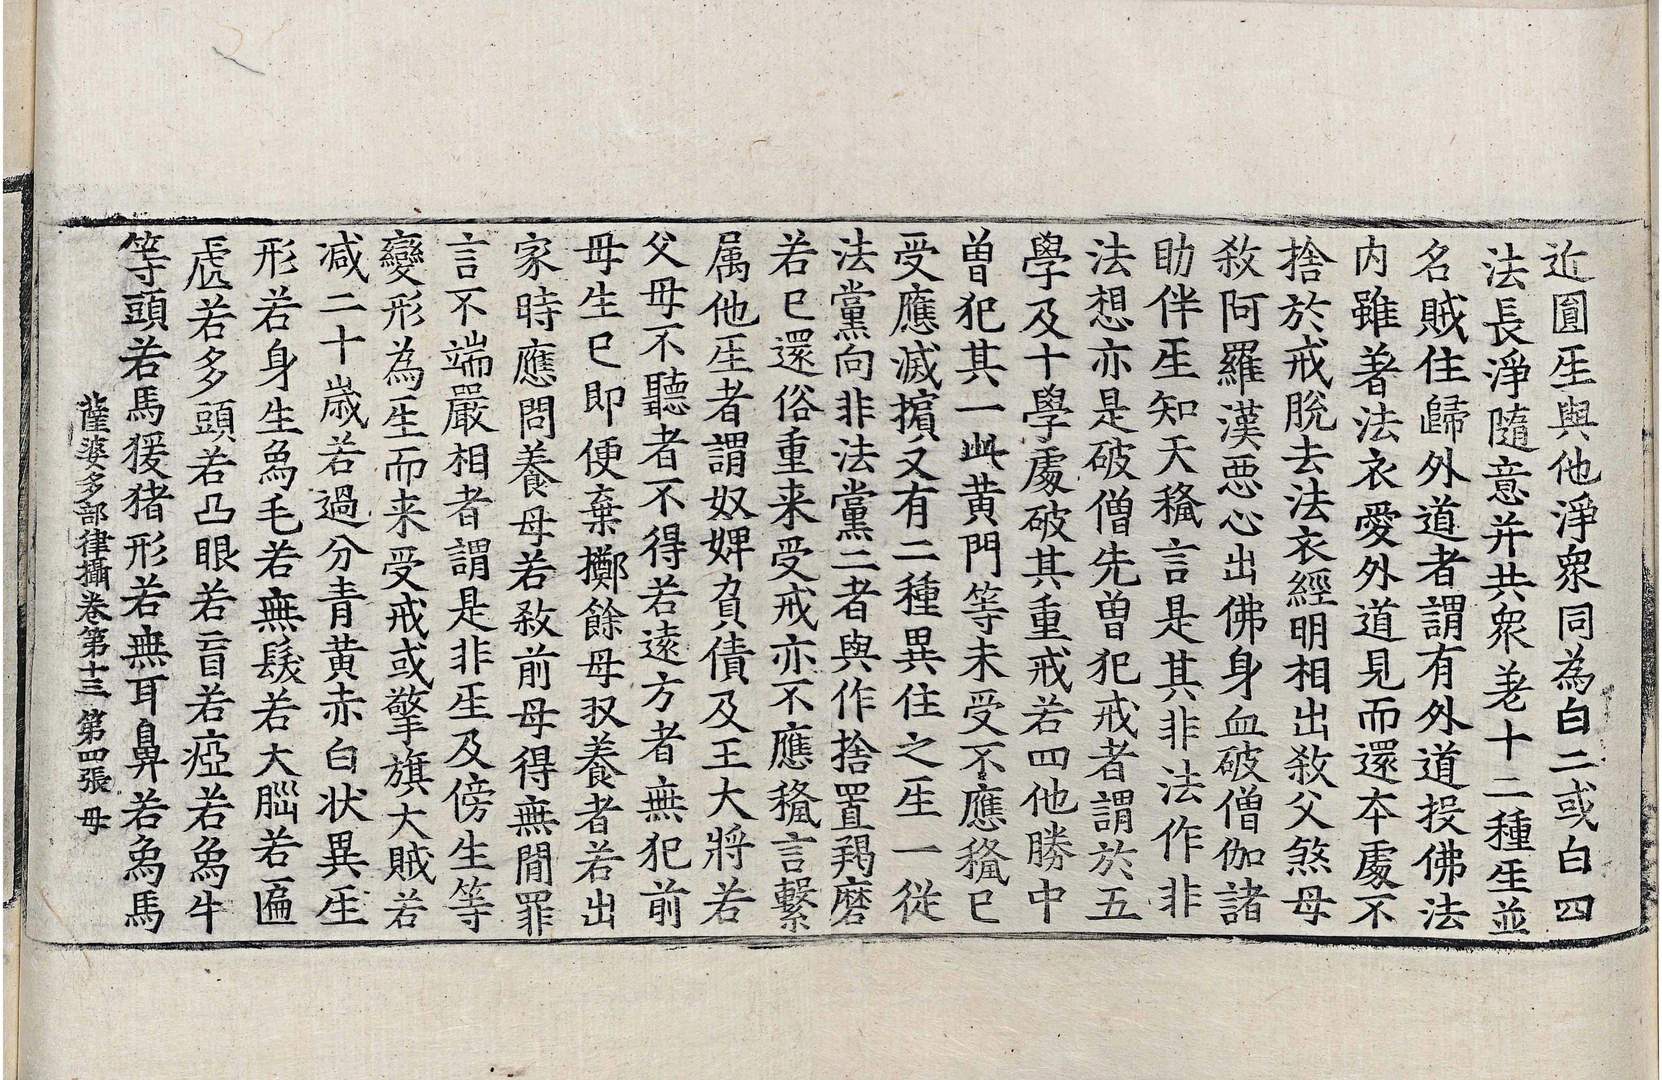 近圓𤯔與他淨衆同為白二或白四
法長淨隨意并共衆羌十二種生並
名賊住歸外道者謂有外道投佛法
内雖著法衣愛外道見而還本處不
捨於戒脫去法衣經明相出殺父煞母
殺阿羅漢惡心出佛身血破僧伽諸
助伴𤯔知天稱言是其非法作非
法想亦是破僧先曽犯戒者謂於五
學及十學處破其重戒若四他勝中
曽犯其一此黄門等未受不應稱已
受應滅擯又有二種異住之𤯔一從
法黨向非法黨二者與作捨置羯磨
若已還俗重来受戒亦不應稱言繫
属他𤯔者謂奴婢負債及王大將若
父母不聽者不得若遠方者無犯前
母生已即便棄擲餘母収養者若出
家時應問養母若殺前母得無間罪
言不端嚴相者謂是非𤯔及傍生等
變形為𤯔而来受戒或擎旗大賊若
减二十歳若過分青黄赤白状異𤯔
形若身生鳥毛若無髮若大腦若匾
𠂆若多頭若凸眼若盲若瘂若象牛
等頭若馬猨猪形若無耳鼻若象馬
薩婆多部律攝卷第十三　第四張　母